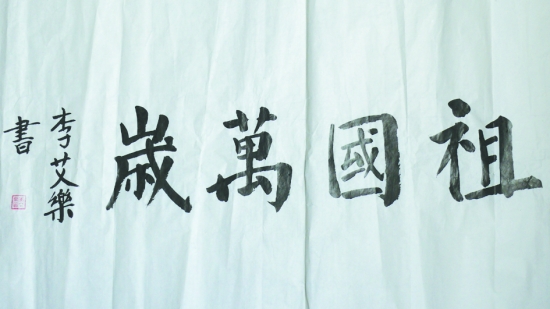 祖國萬歲
李艾樂
書